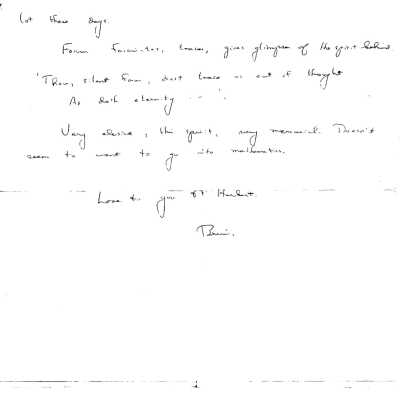 lot these days.
Form fascinates, teases, gives glimpses of the spirit behind.
'Thou, silent form, dost tease us out of thought
As doth eternity --- '.
Very elusive, the spirit, very mercurial. Doesn't
seem to want to go into mathematics.
Love to you & Herbert.